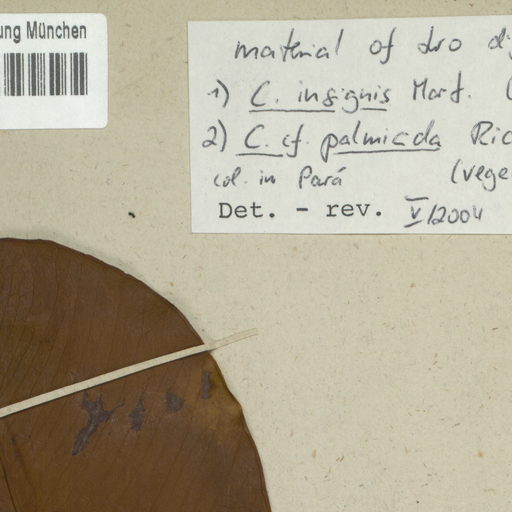 ung München
material of two
1) C. insignis Mart.
2) C. cf. palmicida Ric
col. in Pará (vege
Det. - rev. V/2004